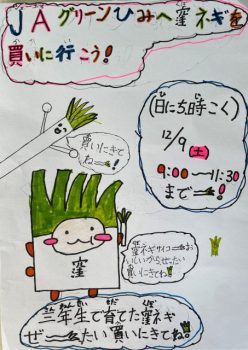 JAグリーンひみへ窪ネギを
買いに行こう!
買いにきて
ね〜!
(日にち時こく)
12/9(土)
9:00〜11:30
まで〜!
窪
窪ネギサイコーお
いしいからぜったい
買いにきてね!
三年生で育てた窪ネギ
ぜ〜たい買いにきてね!